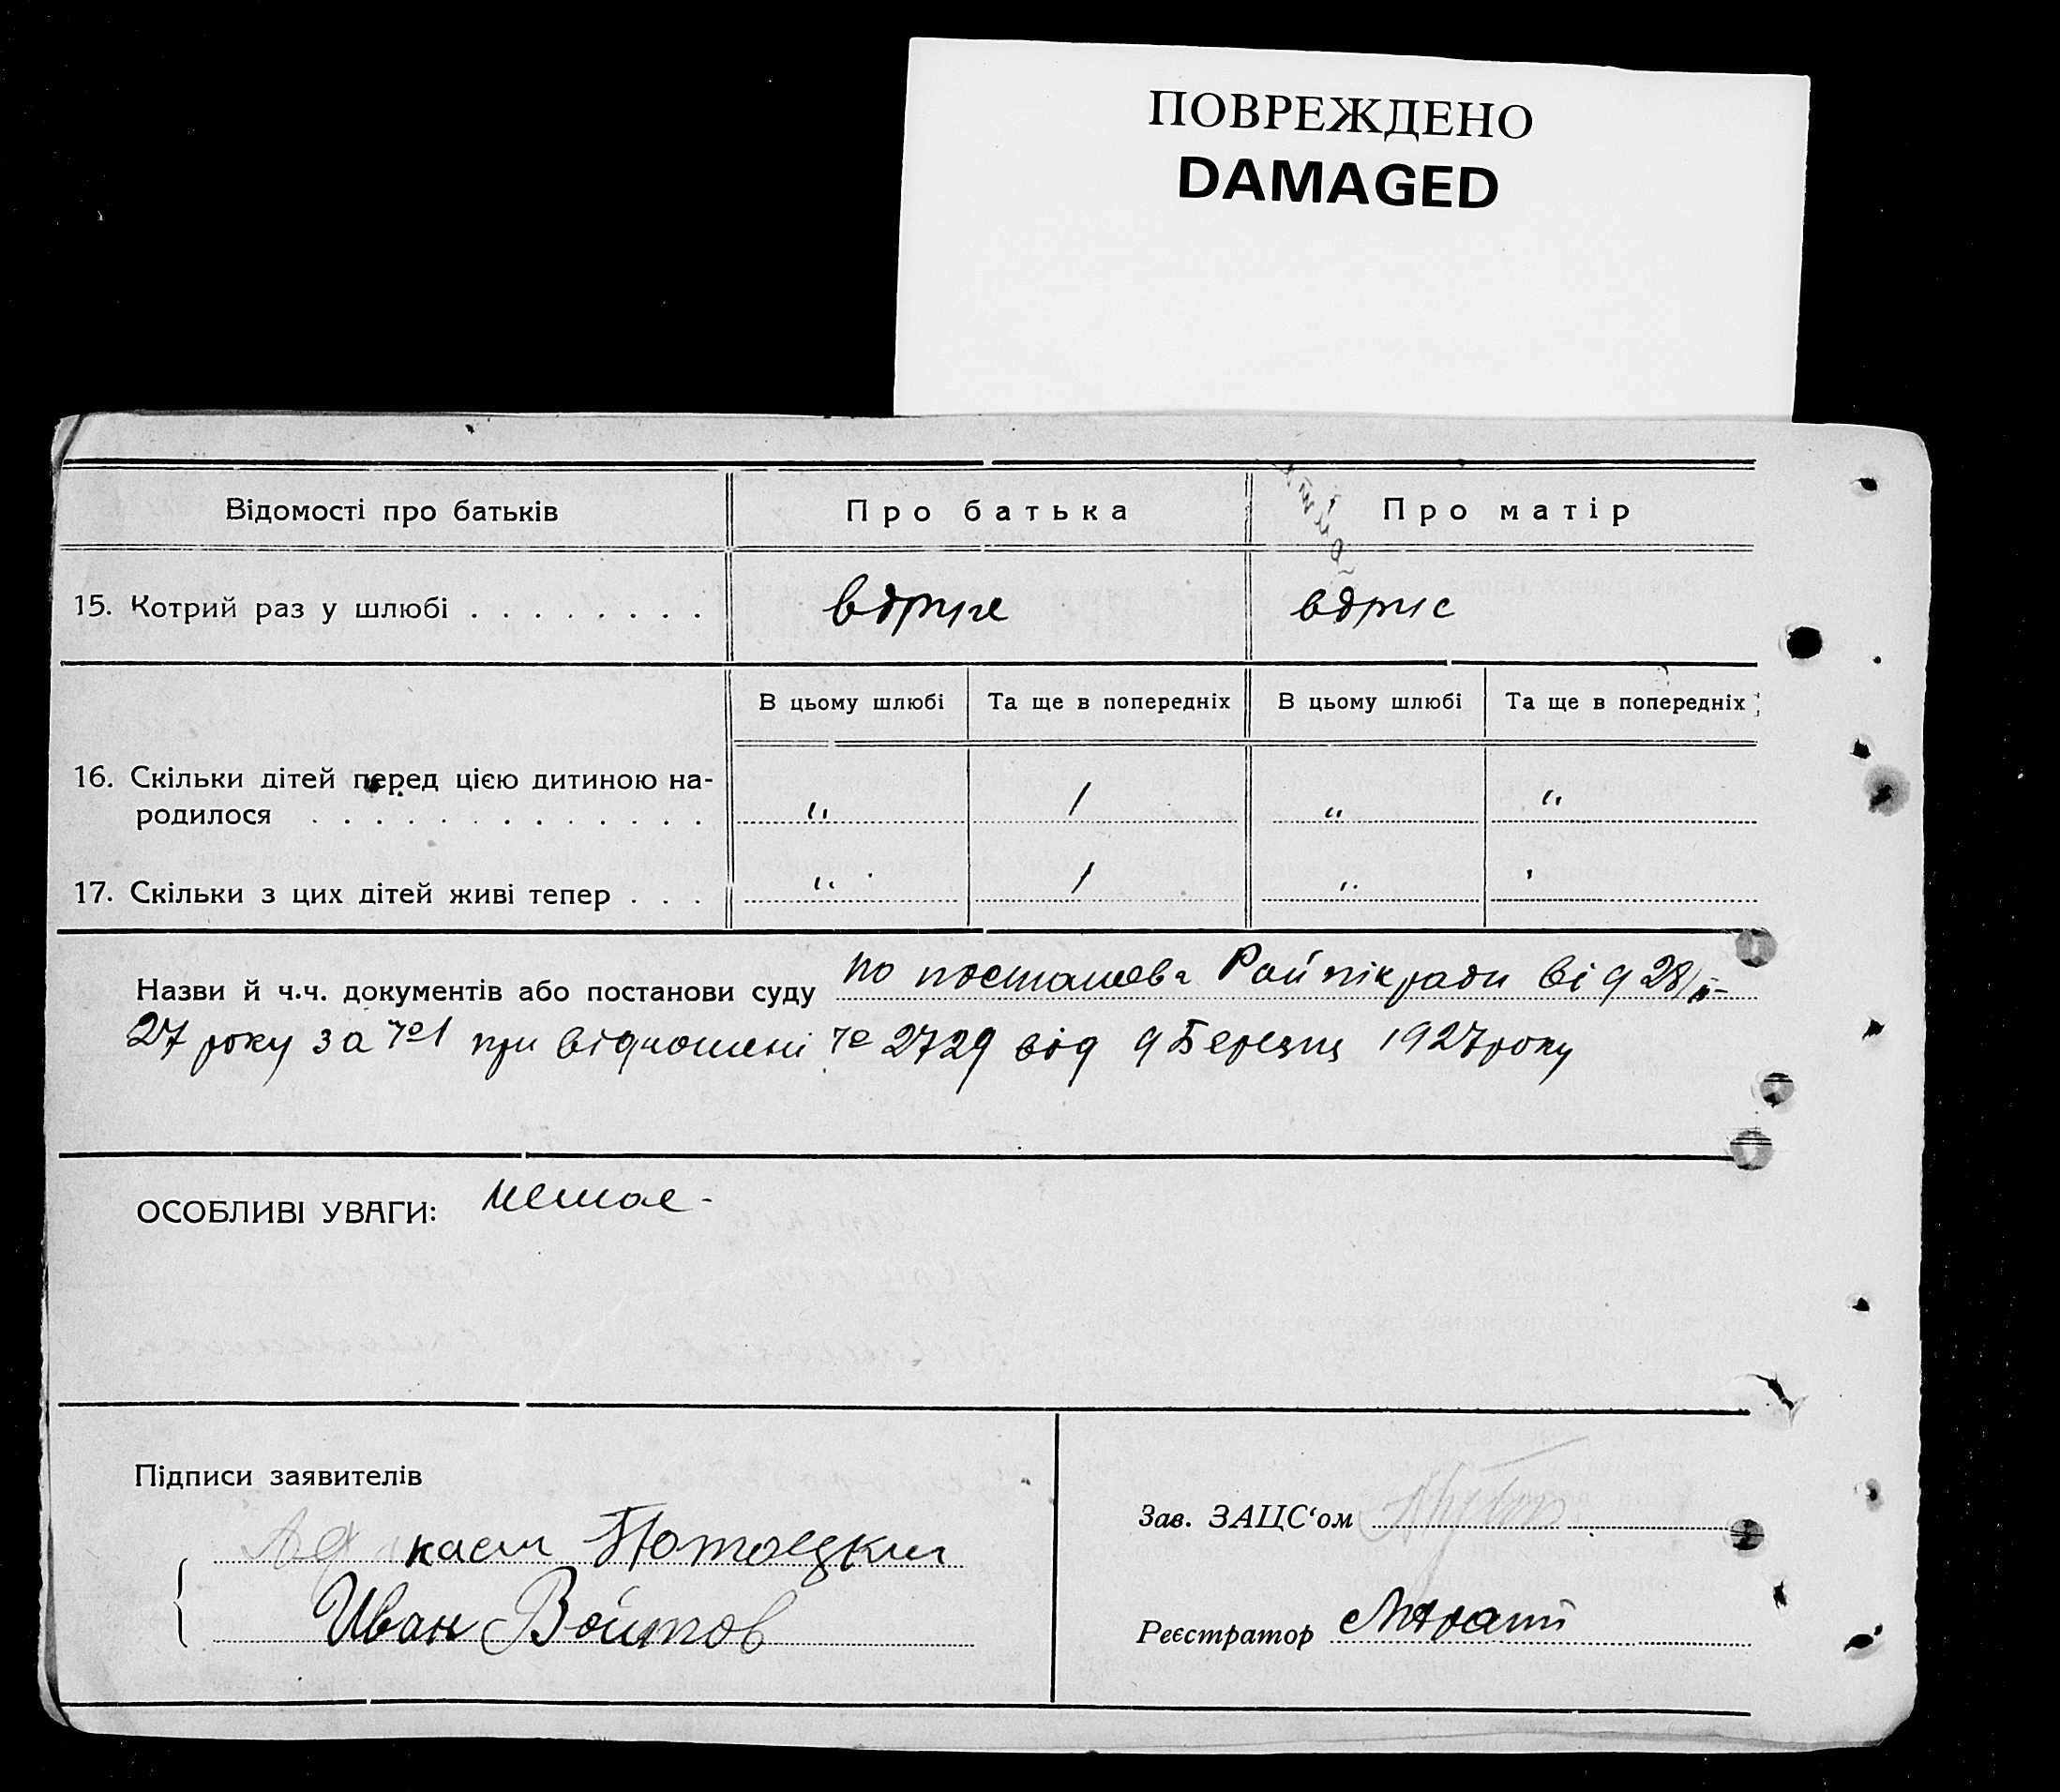 ПОВРЕЖДЕНО
DAMAGED
Відомості про батьків
Про батька
Про матір
15. Котрий раз у шлюбі . . . . . . . .
вдруге
вдруге
В цьому шлюбі
Та ще в попередніх
В цьому шлюбі
Та ще в попередніх
16. Скільки дітей перед цією дитиною на-
родилося . . . . . . . . . . . . .
" 1 " "
17. Скільки з цих дітей живі тепер . . .
" 1 "
Назви й ч.ч. документів або постанови суду по постанові від 28/II-
27 року за № 1 при відношені № 2729 від 9 Березня 1927 року
ОСОБЛИВІ УВАГИ: немає -
Підписи заявителів
Потоцкий
Иван Войтов
Зав. ЗАЦС‘ом
Реєстратор